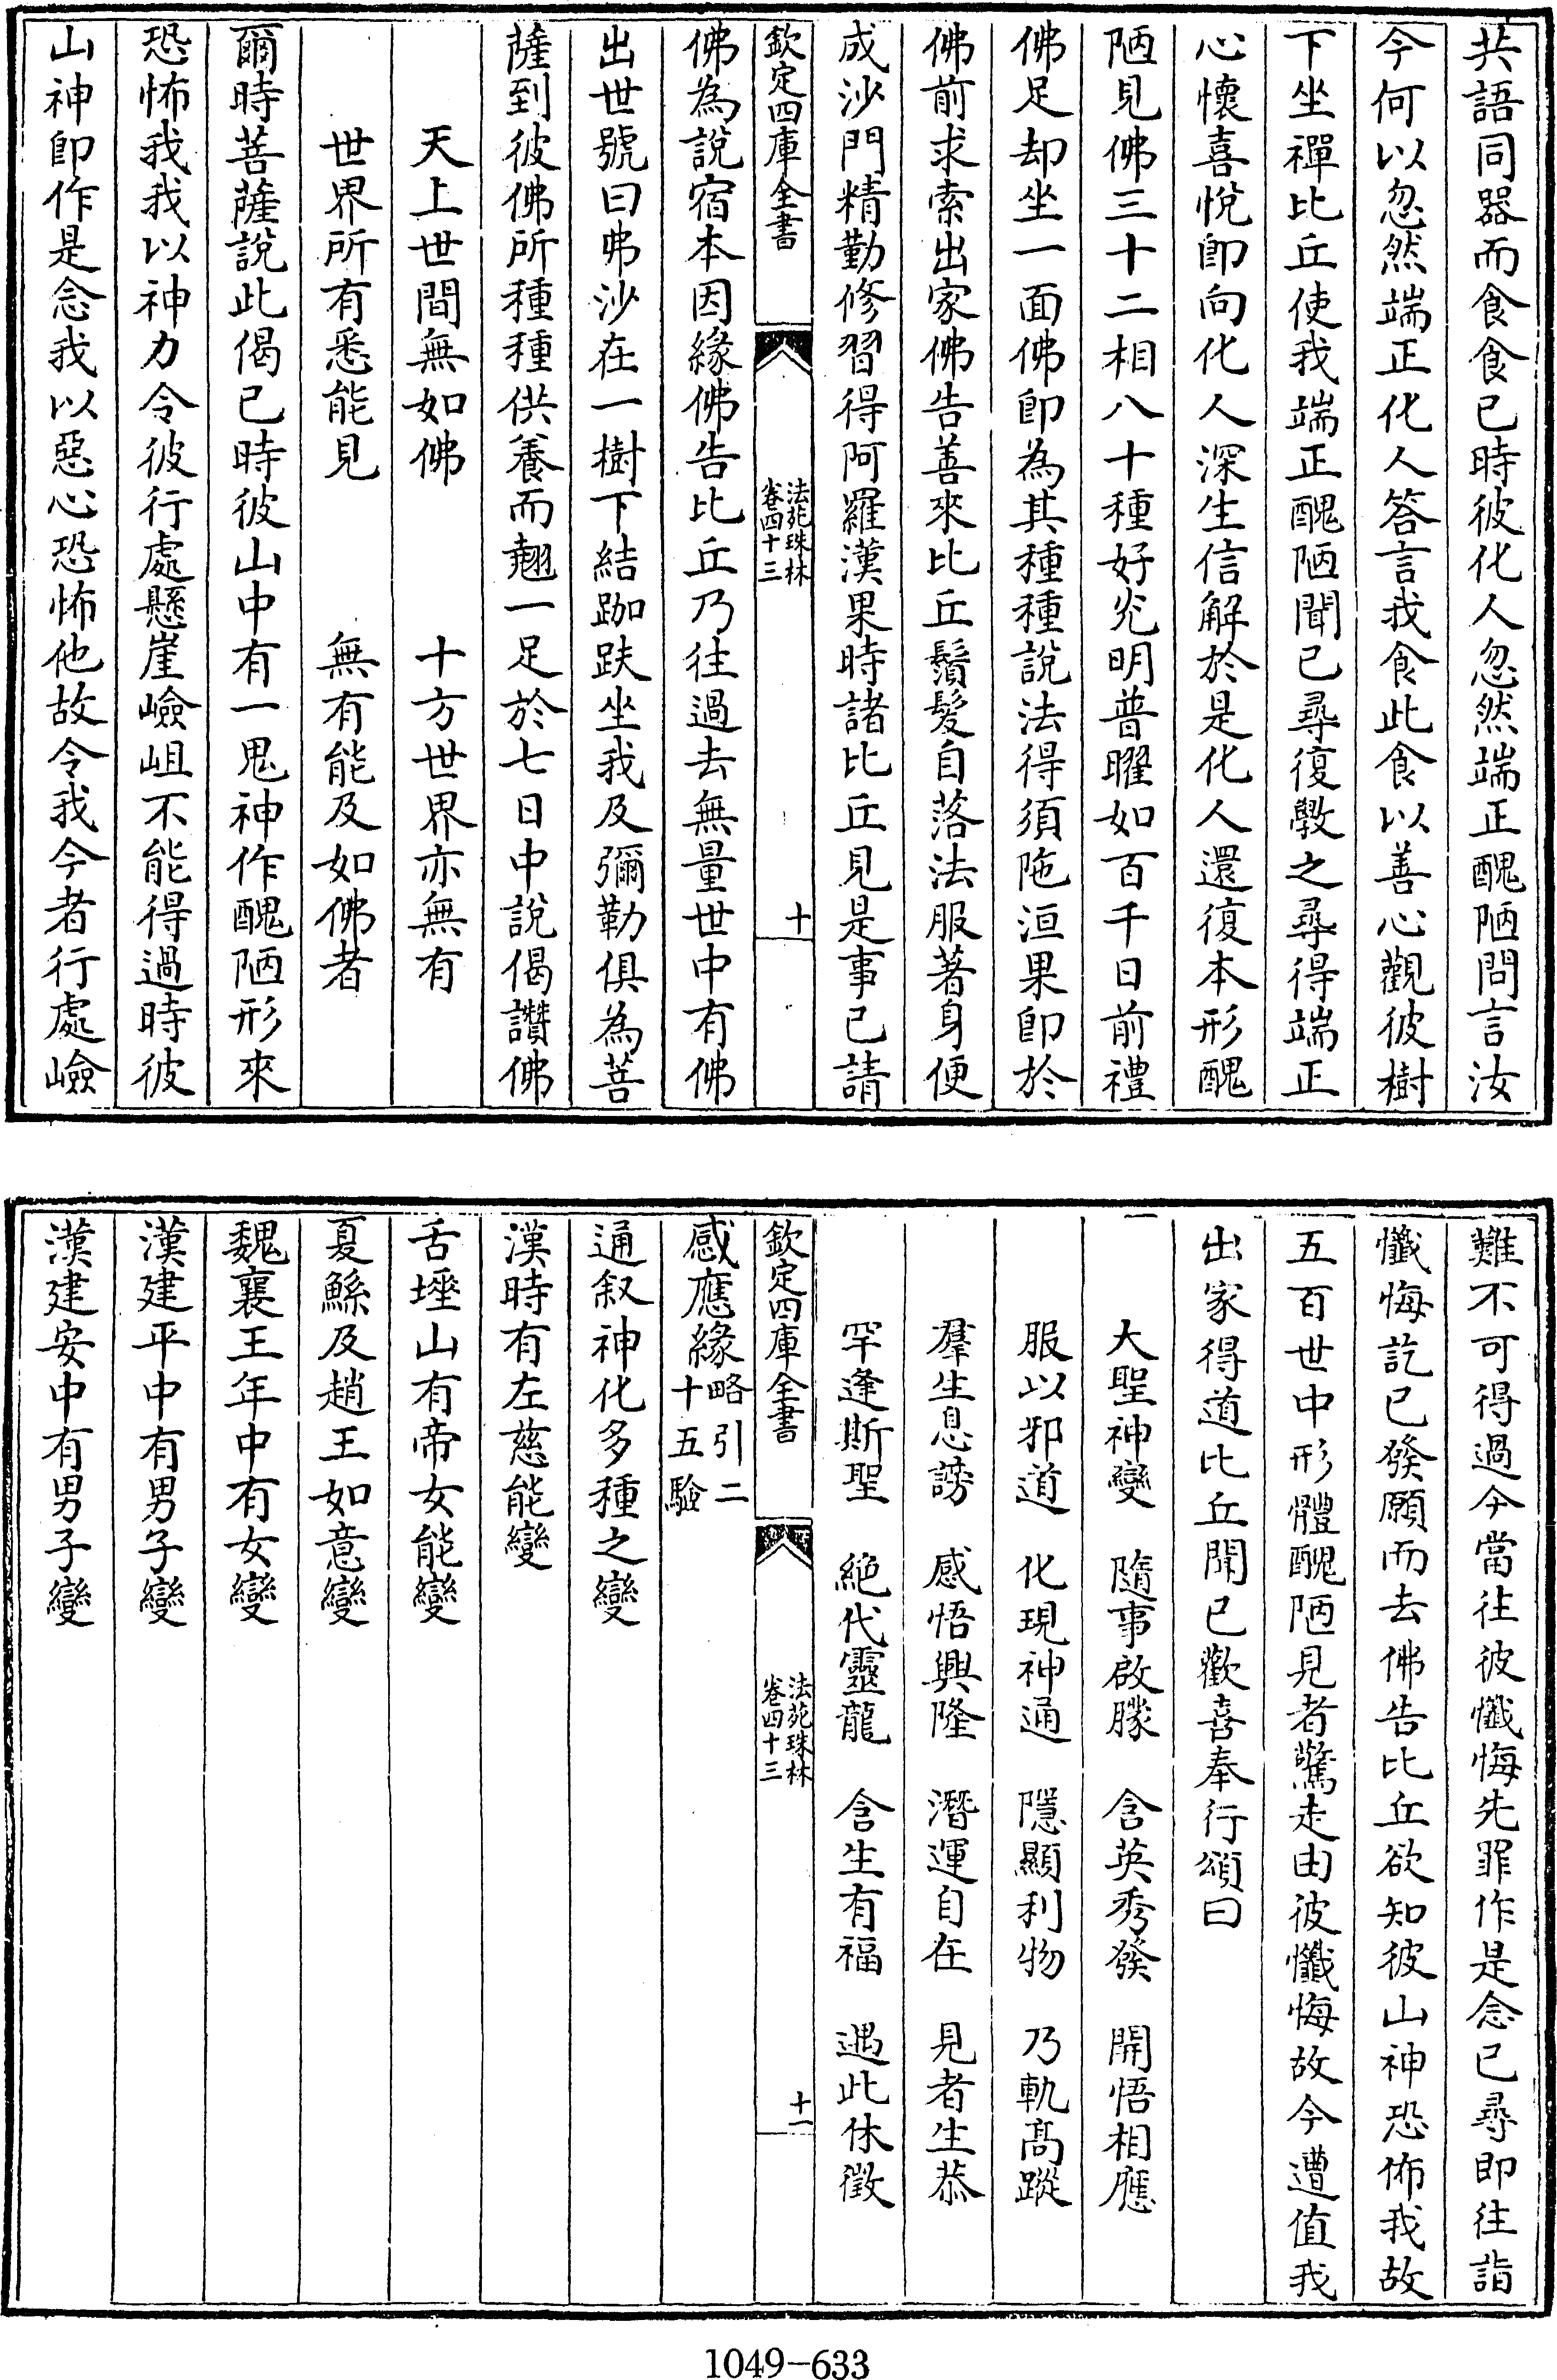 共語同器而食食已時彼化人忽然端正醜陋問言汝
今何以忽然端正化人答言我食此食以善心觀彼樹
下坐禪比丘使我端正醜陋聞已尋復斆之尋得端正
心懷喜悅即向化人深生信解於是化人還復本形醜
陋見佛三十二相八十種好光明普曜如百千日前禮
佛足却坐一面佛即為其種種說法得須陁洹果即於
佛前求索出家佛告善來比丘鬚髮自落法服著身便
成沙門精勤修習得阿羅漢果時諸比丘見是事已請
欽定四庫全書
法苑珠林
卷四十三
十
佛為說宿本因緣佛告比丘乃往過去無量世中有佛
出世號曰弗沙在一樹下結跏趺坐我及彌勒俱為菩
薩到彼佛所種種供養而翹一足於七日中說偈讚佛
天上世間無如佛　十方世界亦無有
世界所有悉能見　無有能及如佛者
爾時菩薩說此偈已時彼山中有一鬼神作醜陋形來
恐怖我我以神力令彼行處懸崖嶮岨不能得過時彼
山神即作是念我以惡心恐怖他故令我今者行處嶮
難不可得過今當往彼懺悔先罪作是念已尋即往詣
懺悔訖已發願而去佛告比丘欲知彼山神恐怖我故
五百世中形體醜陋見者驚走由彼懺悔故今遭值我
出家得道比丘聞已歡喜奉行頌曰
大聖神變　隨事啟朦　含英秀發　開悟相應
服以邪道　化現神通　隱顯利物　乃軌高蹤
羣生息謗　感悟興隆　潛運自在　見者生恭
罕逢斯聖　絶代靈龍　含生有福　遇此休徵
欽定四庫全書
法苑珠林
卷四十三
十一
感應緣略引二十五驗
通叙神化多種之變
漢時有左慈能變
舌埵山有帝女能變
夏鯀及趙王如意變
魏襄王年中有女變
漢建平中有男子變
漢建安中有男子變
1049-633